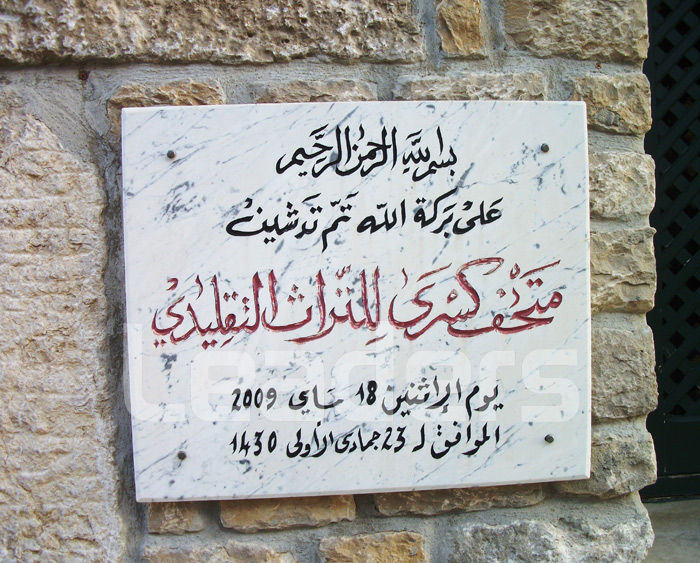 بسم الله الرحمن الرحيم
على بركة الله تم تدشين
متحف كسرى للتراث التقليدي
يوم الإثنين 18 ماي 2009
الموافق لـ 23 جمادى الأولى 1430
Leaders